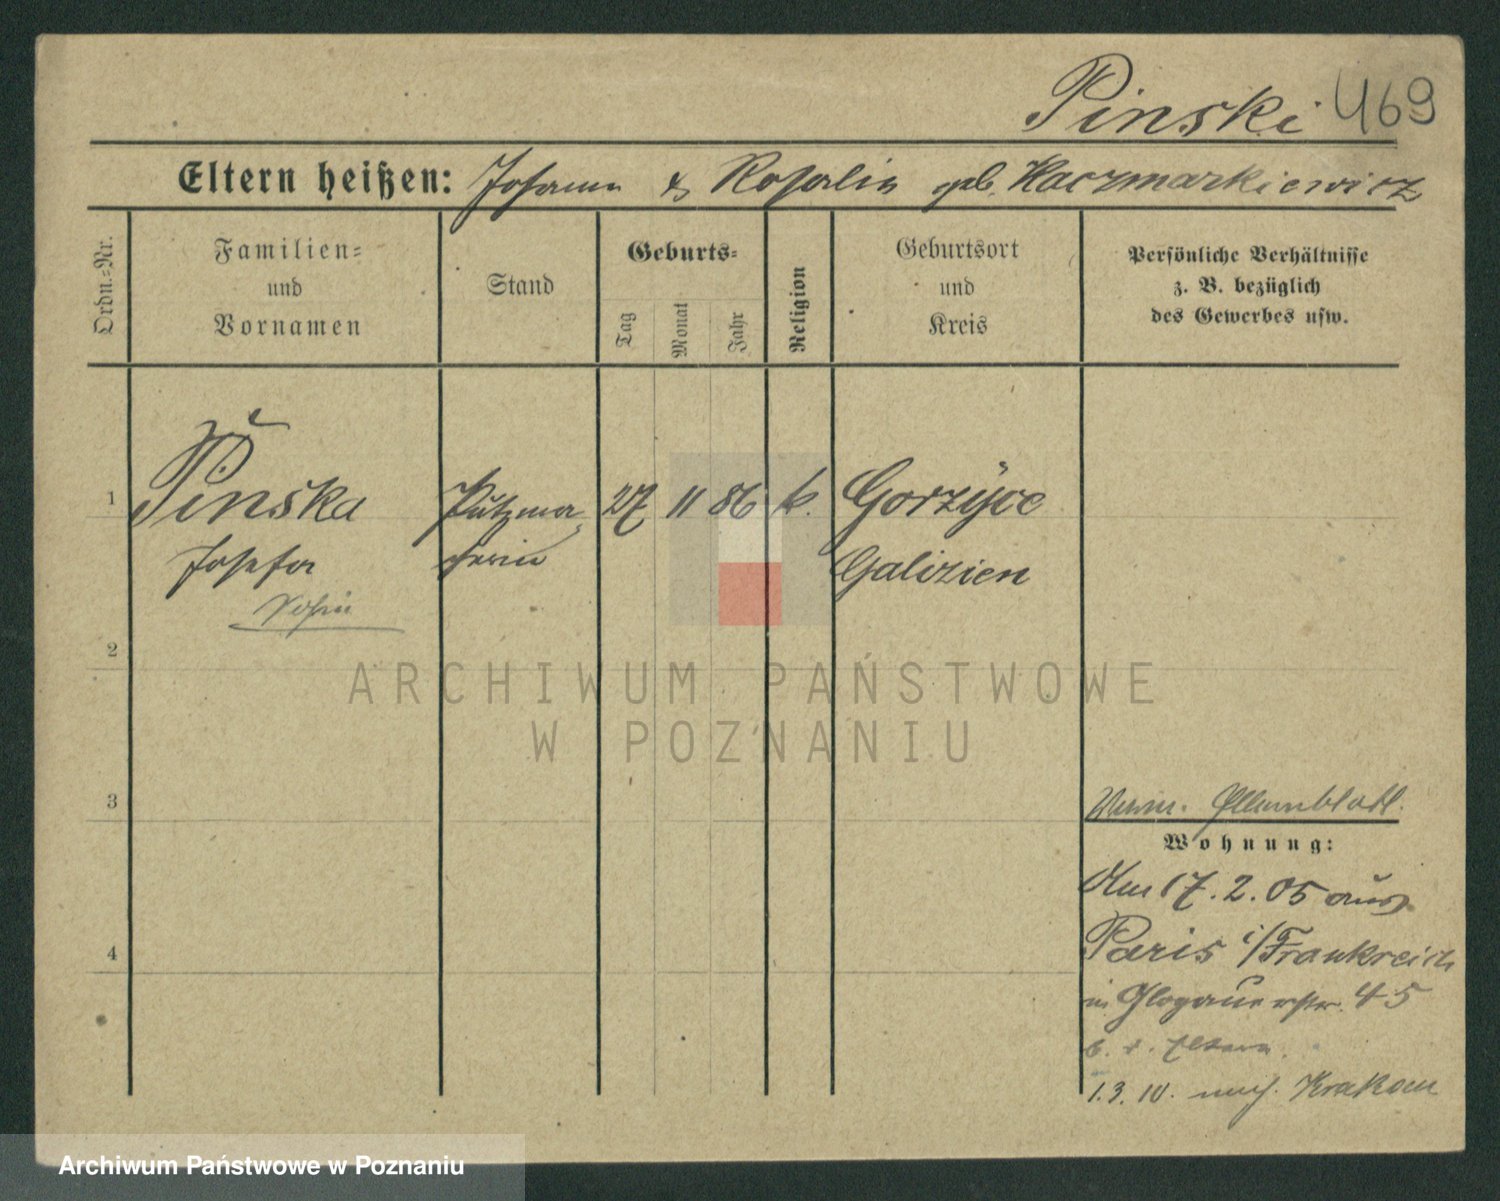 Pinski 469
Eltern heißen: Johann & Rosalia geb. Kaczmarkiewicz
Ordn.=Nr.
Familien=
und
Vornamen
Stand
Geburts=
Tag
Monat
Jahr
Religion
Geburtsort
und
Kreis
Persönliche Verhältnisse
z. B. bezüglich
des Gewerbes usw.
1 Pinska Putzma 27 11 86 k. Gorzÿce
Josefa cherin Galizien
2
3
Wohnung:
Am 17.2.05 aus
Paris i/Frankreich
in Glogauerstr. 45
b. d. Eltern.
1.3.10. nach Krakau
4
ARCHIWUM PAŃSTWOWE
W POZNANIU
Archiwum Państwowe w Poznaniu